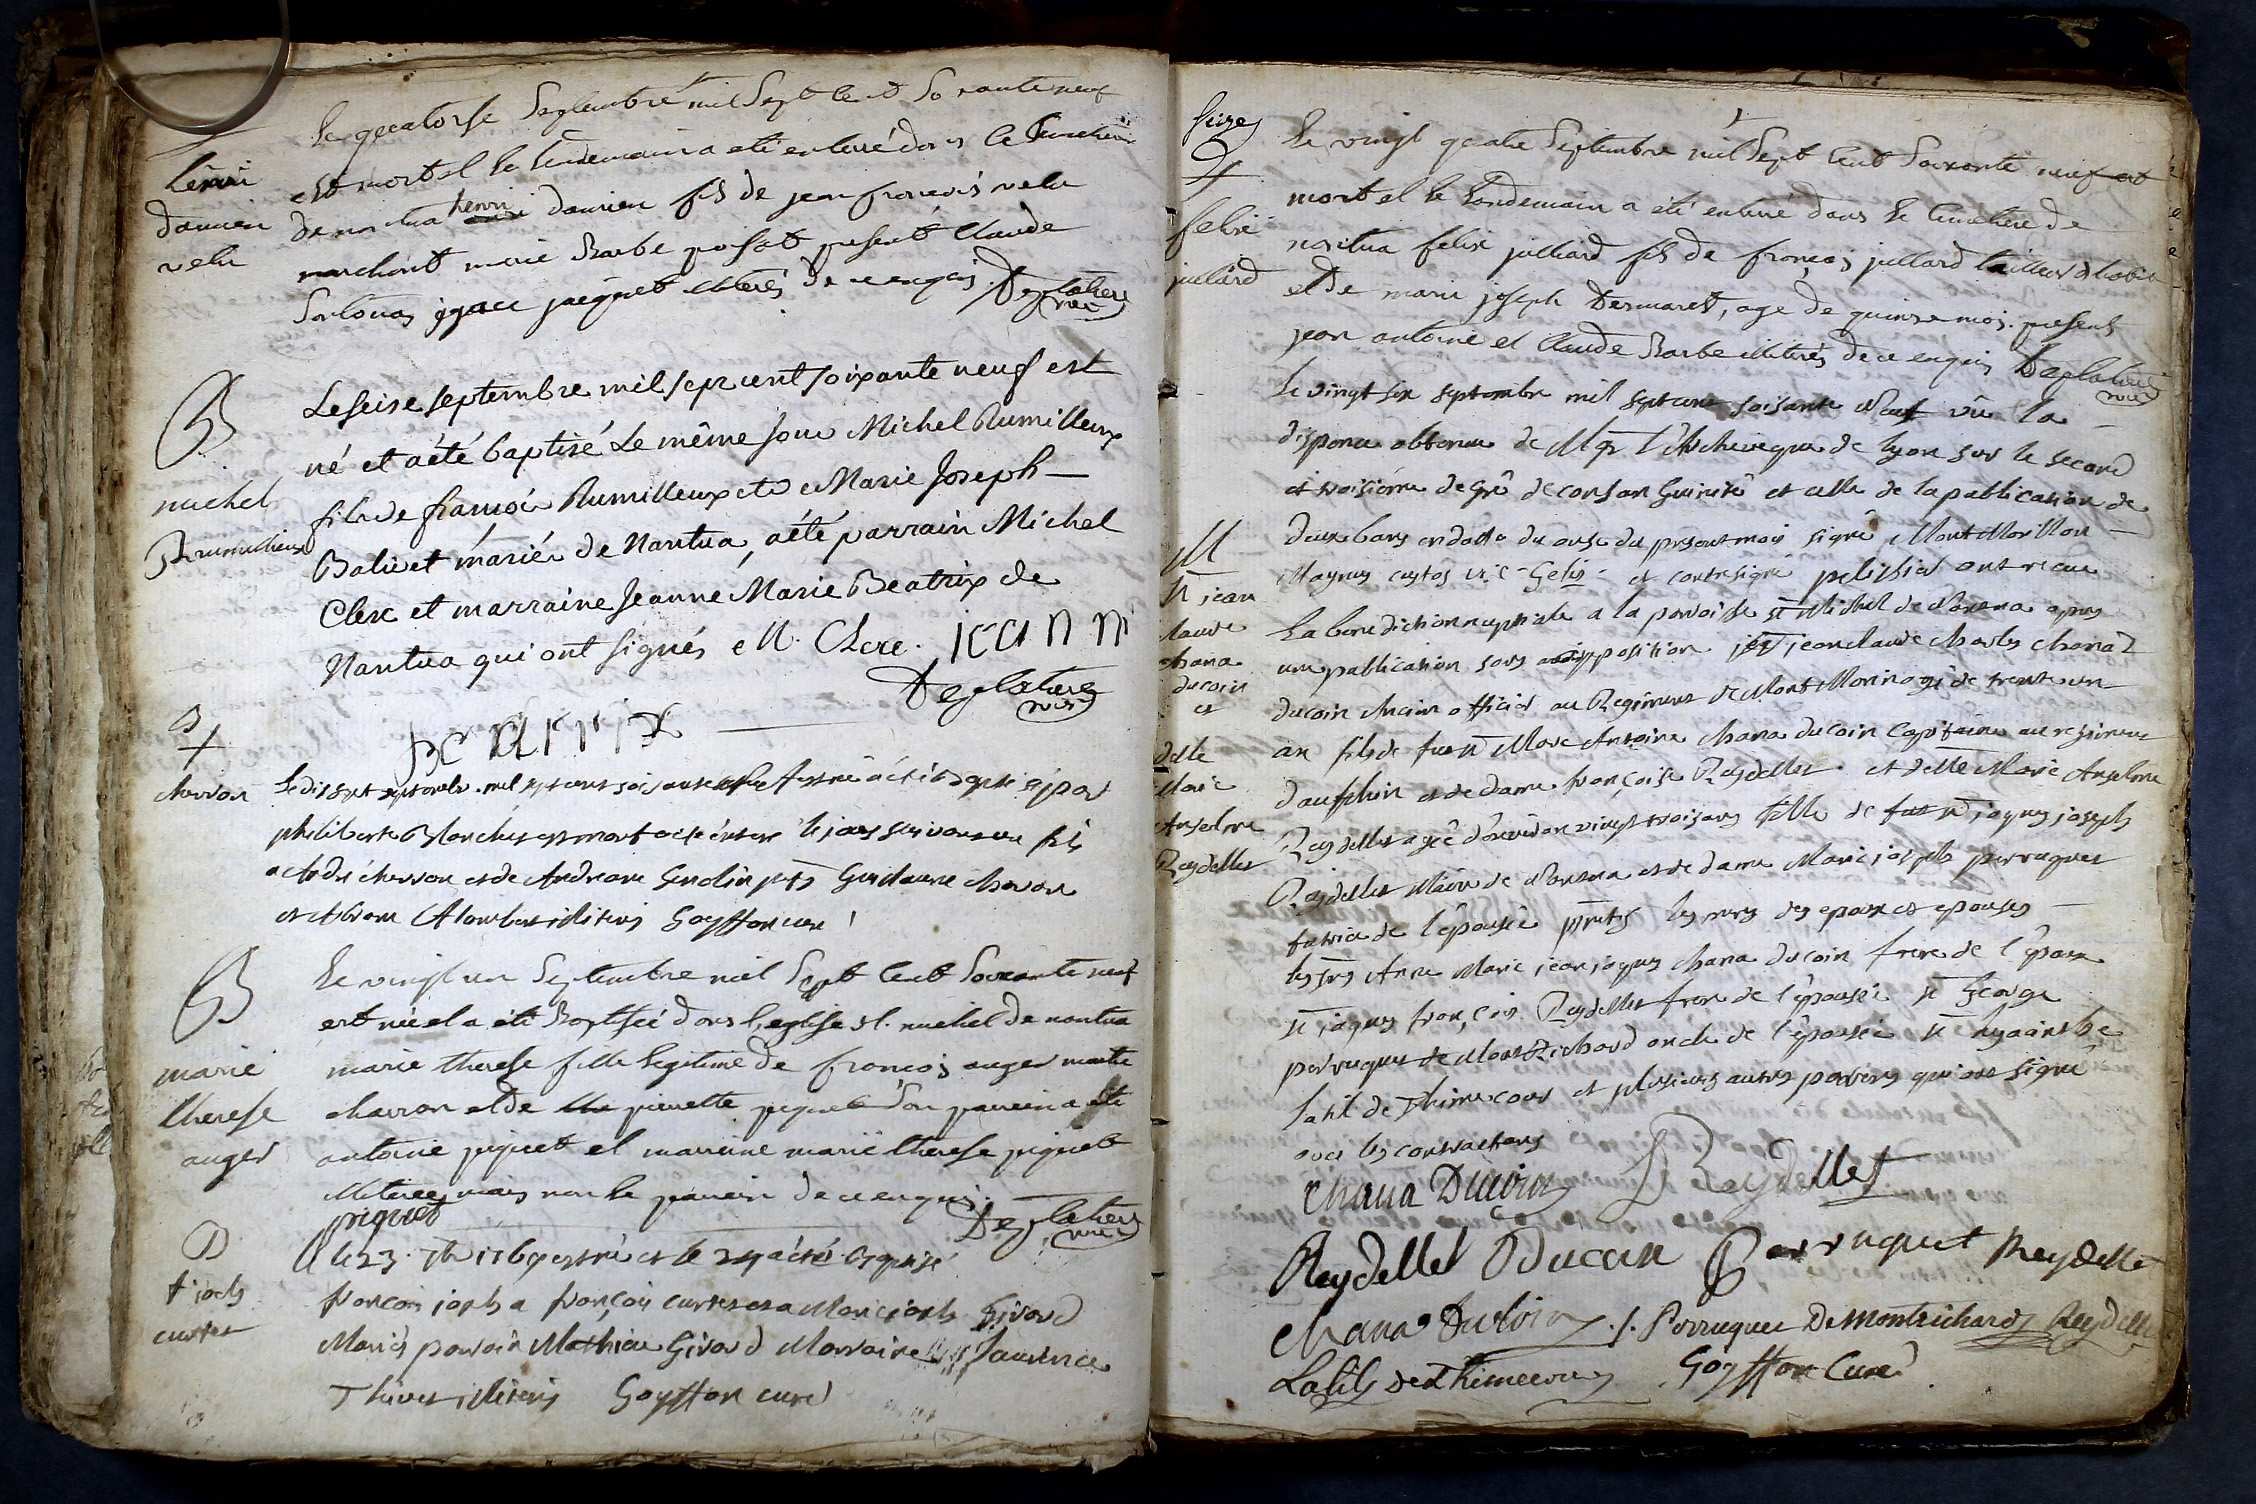 Le quatorse Septembre mil Sept Cent Soixante neuf
est mort et le lendemain a eté enterré dans le Cimetiere
de nantua henri damien fils de jean françois velu
marchant marie Barbe present Claude
ignace jacquet illiterés de ce enquis. Deglatiere
vic
henri
damien
velu
B
michel
Rumilieux
Le seise septembre mil sept cent soixante neuf est
né et a été baptisé Le même jour Michel Rumilleux
fils de françois Rumilleux et de Marie Joseph
Baliet mariés de Nantua, a été parrain Michel
Clerc et marraine Jeanne Marie Beatrix de
Nantua qui ont signés M. Clere. Jeann
Deglatiere
vic
B
+
charvon
Le dix sept septembre mil sept cent soisante neuf est né a été baptisé par
philiberte Blanchet est mort a été enterré le jour suivant un fils
a André charvon et de Andreane Gendin pnts Guillaume charvon
et illiterés Goyffon curé
B
marie
therese
auger
Le vingt un Septembre mil Sept Cent Soixante neuf
est née et a été Baptisée dans l'eglise st. michel de nantua
marie therese fille legitime de françois auger maitre
charron et de pierrette piquet Son parrein a été
antoine piquet et marreine marie therese piquet
illiterée mais non le parrein de ce enquis.
piquet Deglatiere
vic
B
f josph
curtet
le 23. 7bre 1769 est né et le 24 a été baptisé
françois joseph a françois curtet et a Marie joseph Girard
Mariés parrain Mathieu Girard Marraine Laurence
Thivet illiterés Goyffon curé
Seize
+
felix
julliard
Le vingt quatre Septembre mil Sept Cent Soixante neuf est
mort et le Lendemain a eté enterré dans le Cimetiere de
nantua felix julliard fils de françois julliard tailleur d'habit
et de marie joseph Desmaret, age de quinse mois. presents
jean antoine et Claude Barbe illiterés de ce enquis Deglatiere
vic
M
Sr jean
claude
chana
ducoin
et
delle
Marie
Anselme
Reydellet
Le vingt six septembre mil sept cent soisante neuf vû la
dispense obtenue de Mgr l'Archeveque de lyon sur le second
et troisiéme degré de consanguinité et celle de la publication de
deux bans en datte du onse du present mois signé Mont Morillon
Magnus custos vic-Gelis- et contresigné pelissier ont recue
La benediction nuptiale a la paroisse st Michel de Nantua apres
une publication sans opposition Sr jean claude charles chana
ducoin Ancien officier au Regiment de Mont Morin agé de trente un
an fils de feu Sr Marc Antoine chana ducoin Capitaine au regiment
dauphin et de dame françoise Reydellet. et delle Marie Anselme
Reydellet agée d'environ vingt trois ans fille de feu Sr jaques joseph
Reydellet Maire de Nantua et de dame Marie joseph perruquet
tutrice de l'épousée pnts les meres des epoux et epouses
les Srs Anne Marie jean jaques chana ducoin frere de l'époux
Sr jaques françois Reydellet frere de l'épousée Sr George
perruquet de Montrichard oncle de l'épousée Sr hyacinthe
Latil de Thimecour et plusieurs autres parens qui ont signé
avec les contractans
Chana Ducoin Reydellet
Reydellet Ducoin Perruquet Reydellet
Chana Ducoin J. Perruquet De Montrichard Reydellet
Latil de Thimecour Goyffon Curé